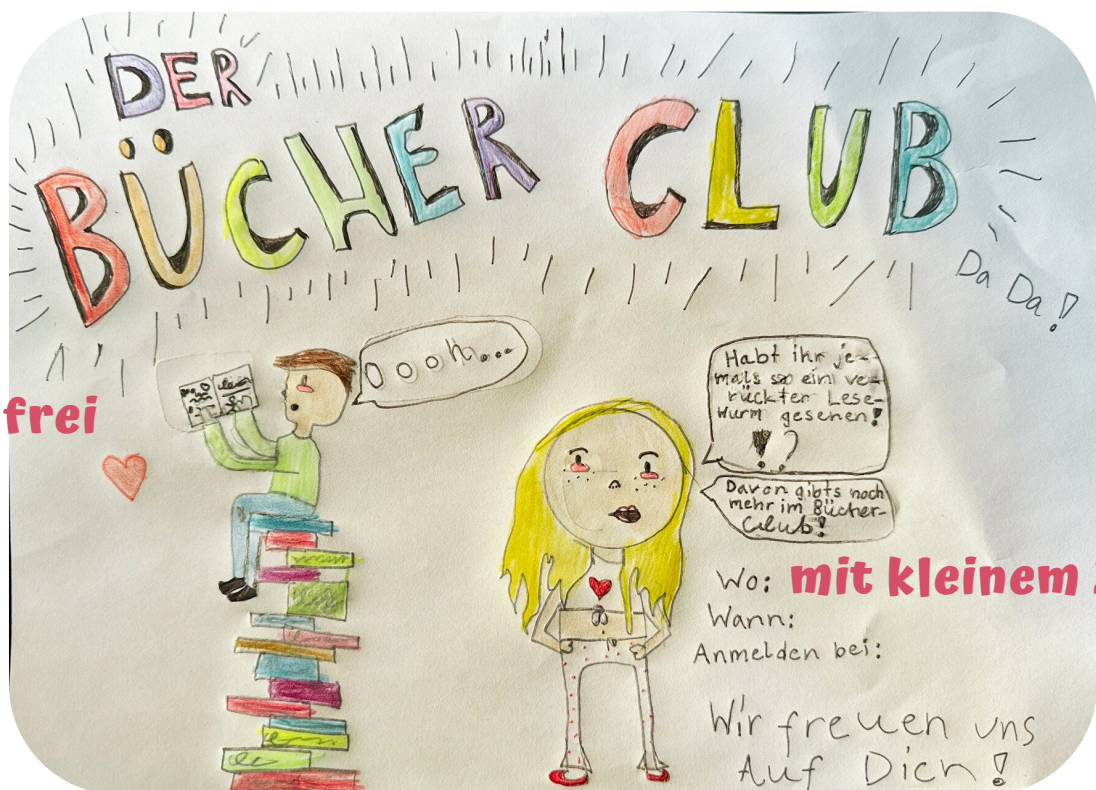 DER
BÜCHER CLUB
Da Da!
Dooom...
frei
Habt ihr je-
mals so ein ve-
rückten Lese-
wurm gesehen!
!?
Davon gibts noch
mehr im Bücher-
Club!
Wo: mit kleinem
Wann:
Anmelden bei:
Wir freuen uns
Auf Dich!